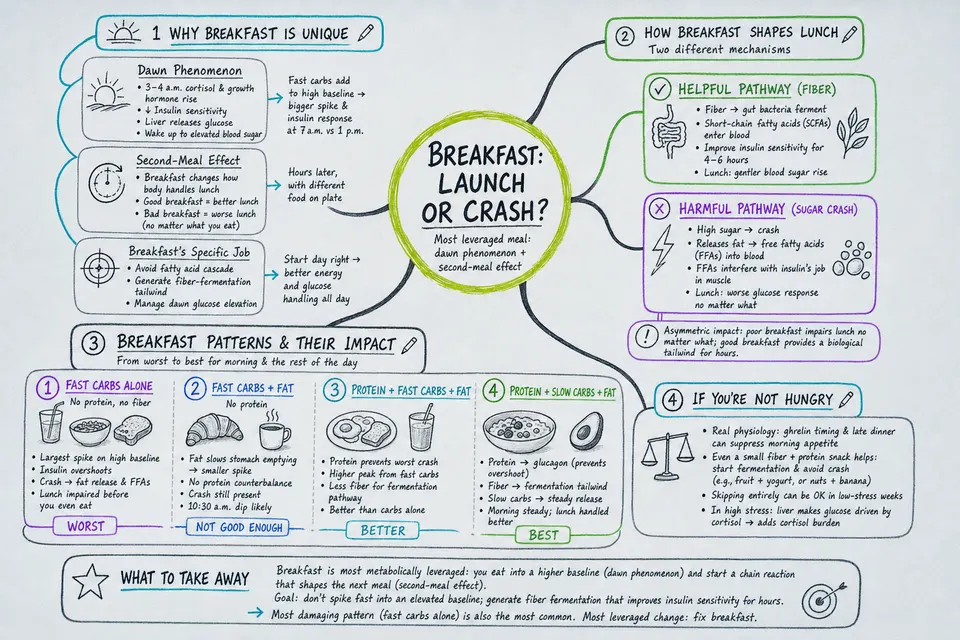 1 WHY BREAKFAST IS UNIQUE
Dawn Phenomenon
• 3–4 a.m. cortisol & growth
hormone rise
• ↓ Insulin sensitivity
• Liver releases glucose
• Wake up to elevated blood sugar
Fast carbs add
to high baseline →
bigger spike &
insulin response
at 7 a.m. vs 1 p.m.
Second-Meal Effect
• Breakfast changes how
body handles lunch
• Good breakfast = better lunch
• Bad breakfast = worse lunch
(no matter what you eat)
Hours later,
with different
food on plate
Breakfast's Specific Job
• Avoid fatty acid cascade
• Generate fiber-fermentation
tailwind
• Manage dawn glucose elevation
Start day right →
better energy
and glucose
handling all day
BREAKFAST:
LAUNCH
OR CRASH?
Most leveraged meal:
dawn phenomenon +
second-meal effect
2 HOW BREAKFAST SHAPES LUNCH
Two different mechanisms
HELPFUL PATHWAY (FIBER)
• Fiber → gut bacteria ferment
• Short-chain fatty acids (SCFAs)
enter blood
• Improve insulin sensitivity for
4–6 hours
• Lunch: gentler blood sugar rise
HARMFUL PATHWAY (SUGAR CRASH)
• High sugar → crash
• Releases fat → free fatty acids
(FFAs) into blood
• FFAs interfere with insulin's job
in muscle
• Lunch: worse glucose response
no matter what
! Asymmetric impact: poor breakfast impairs lunch no
matter what; good breakfast provides a biological
tailwind for hours.
3 BREAKFAST PATTERNS & THEIR IMPACT
From worst to best for morning & the rest of the day
1 FAST CARBS ALONE
No protein, no fiber
• Largest spike on high baseline
• Insulin overshoots
• Crash → fat release & FFAs
• Lunch impaired before
you even eat
WORST
2 FAST CARBS + FAT
No protein
• Fat slows stomach emptying
→ smaller spike
• No protein counterbalance
• Crash still present
• 10:30 a.m. dip likely
NOT GOOD ENOUGH
3 PROTEIN + FAST CARBS + FAT
• Protein prevents worst crash
• Higher peak from fast carbs
• Less fiber for fermentation
pathway
• Better than carbs alone
BETTER
4 PROTEIN + SLOW CARBS + FAT
• Protein → glucagon (prevents
overshoot)
• Fiber → fermentation tailwind
• Slow carbs → steady release
• Morning steady; lunch handled
better
BEST
4 IF YOU'RE NOT HUNGRY
• Real physiology: ghrelin timing & late dinner
can suppress morning appetite
• Even a small fiber + protein snack helps:
start fermentation & avoid crash
(e.g., fruit + yogurt, or nuts + banana)
• Skipping entirely can be OK in low-stress weeks
• In high stress: liver makes glucose driven by
cortisol → adds cortisol burden
WHAT TO TAKE AWAY
Breakfast is most metabolically leveraged: you eat into a higher baseline (dawn phenomenon) and start a chain reaction
that shapes the next meal (second-meal effect).
Goal: don't spike fast into an elevated baseline; generate fiber fermentation that improves insulin sensitivity for hours.
→ Most damaging pattern (fast carbs alone) is also the most common. Most leveraged change: fix breakfast.